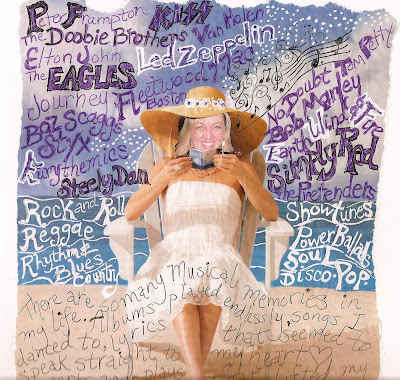 Peter Frampton KISS Van Halen
The Doobie Brothers
Elton John Led Zeppelin
The EAGLES Fleetwood Mac
Journey Boston
Boz Scaggs
Styx
Eurythmics
Steely Dan
No Doubt Tom Petty
Bob Marley
Earth Wind & Fire
Simply Red
The Pretenders
Rock and Roll
Reggae
Rhythm &
Blues
Country
Show Tunes
Power Ballads
Soul
Disco-Pop
There are so many Musical memories in
my life. Albums played endlessly, songs I
danced to, lyrics that seemed to
speak straight to my heart
plays my